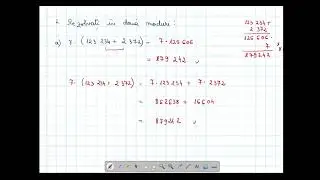 1. Rezolvați în două moduri:
a) 7·(123 234 + 2 372) = 7·125 606
= 879 242
7·(123 234 + 2 372) = 7·123 234 + 7·2372
= 862638 + 16604
= 879242
123 234 +
2 372
125 606 ·
7
879242